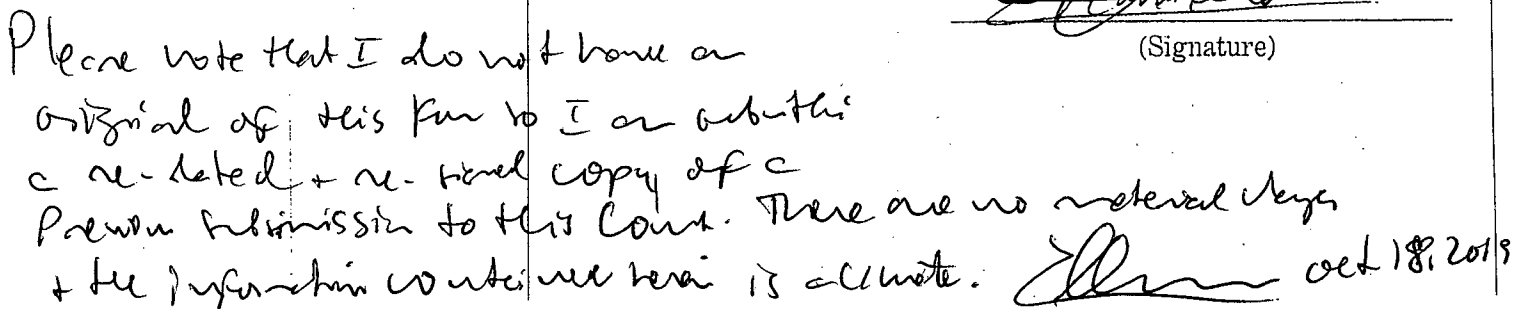 (Signature)
Please note that I do not have an
original of this form so I am submitting
a re-dated + re-signed copy of a
previous submission to this Court. There are no material changes
+ the information contained herein is accurate. Oct 18, 2019